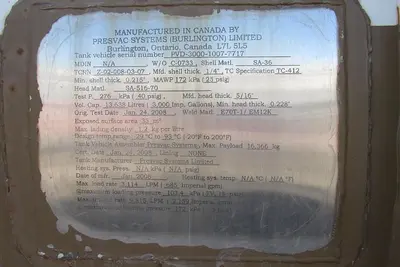 MANUFACTURED IN CANADA BY
PRESVAC SYSTEMS (BURLINGTON) LIMITED
Burlington, Ontario, Canada L7L 5L5
Tank vehicle serial number PVD-3000-1007-7717
MDIN N/A W/O C-0733 Shell Matl. SA-36
TCRN Z-02-008-03-07 Mfd. shell thick. 1/4" TC Specification TC-412
Min. shell thick. 0.215" MAWP 172 kPa ( 25 psig)
Head Matl. SA-516-70
Test P. 276 kPa ( 40 psig) Mfd. head thick. 5/16"
Vol. Cap. 13,638 Litres ( 3,000 Imp. Gallons) Min. head thick. 0.226"
Orig. Test Date Jan. 24 2008 Weld Matl. E70T-1/ EM12K
Exposed surface area
Max. lading density
Design temp. range
Tank Vehicle Assembler Presvac Systems Max. Payload
Cert. Date Jan. 24, 2008 Lining NONE
Tank Manufacturer Presvac Systems Limited
Heating sys. Press. N/A kPa ( N/A psig)
Date of mfr. Jan. 2008 Heating sys. temp. N/A °C( N/A °F)
Max. load rate 3,114 LPM ( 685 Imperial gpm)